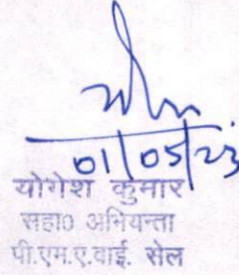 01/05/23
योगेश कुमार
सहा० अभियन्ता
पी.एम.ए.वाई. सेल